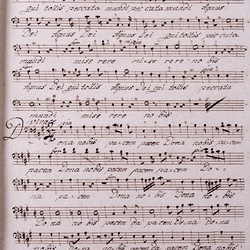 qui tollis peccata mundi peccata mundi agnus
Dei agnus Dei agnus Dei qui tollis peccata
mundi miserere miserere nobis
agnus Dei qui tollis peccata
mundi miserere nobis
Dona nobis pacem pacem Dona nobis
pacem Dona nobis pacem Dona nobis
pacem pacem Do-
na nobis pacem da pacem Dona dona
nobis pacem Dona nobis